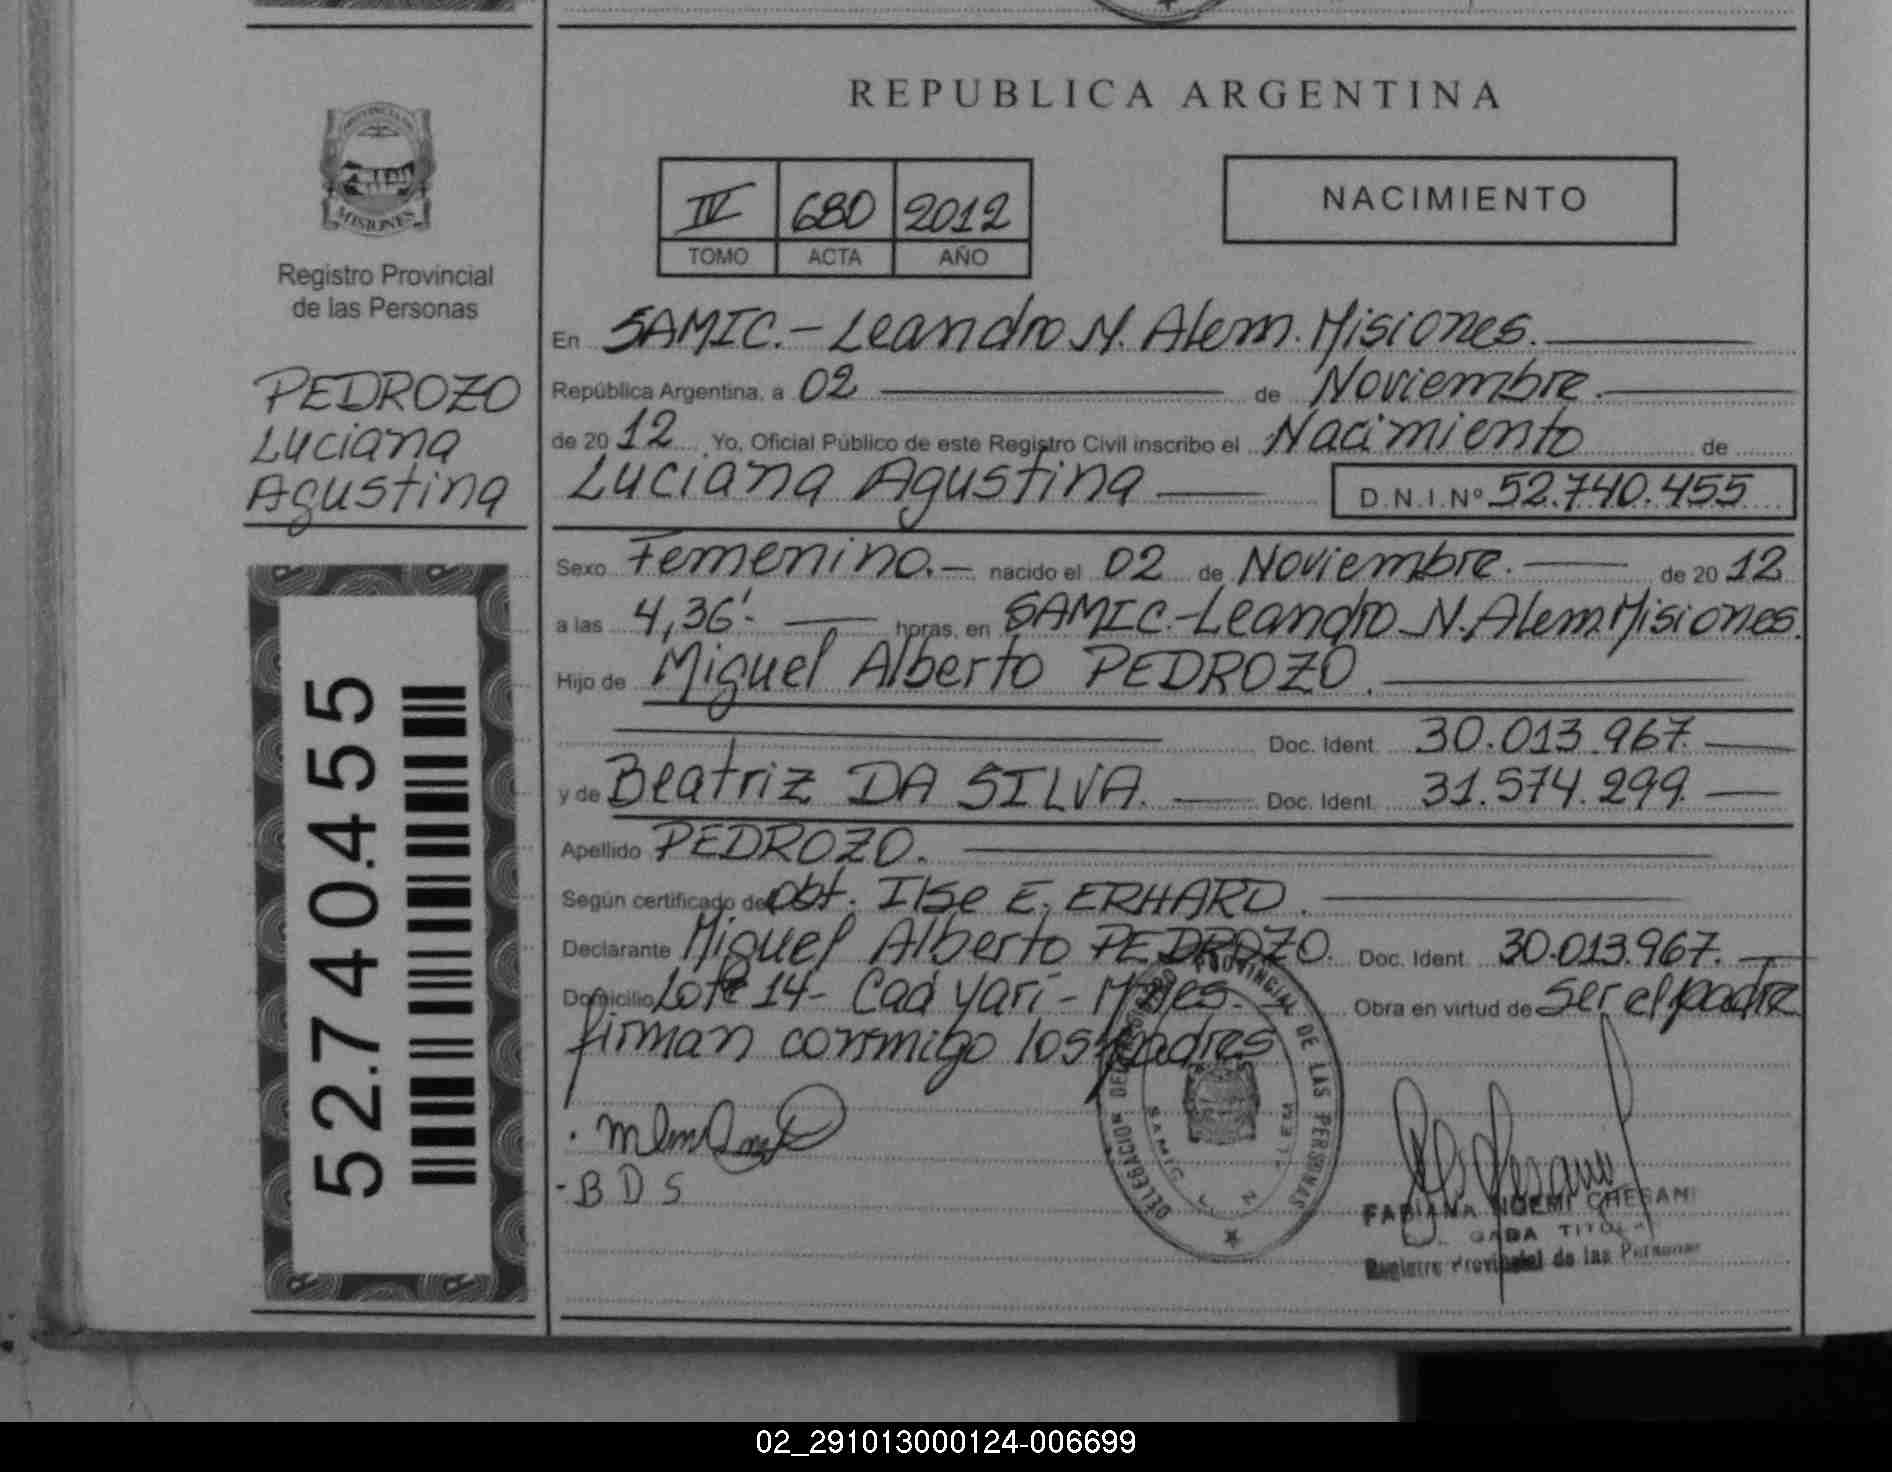 REPUBLICA ARGENTINA
PROVINCIA DE
MISIONES
Registro Provincial
de las Personas
IV 680 2012
TOMO ACTA AÑO
NACIMIENTO
PEDROZO
Luciana
Agustina
52.740.455
En SAMIC.- Leandro N. Alem. Misiones.
República Argentina, a 02 de Noviembre.
de 20 12 Yo, Oficial Público de este Registro Civil inscribo el Nacimiento de
Luciana Agustina D.N.I.Nº 52.740.455
Sexo Femenino.- nacido el 02 de Noviembre. de 20 12
a las 4,36'. horas, en SAMIC.-Leandro N. Alem. Misiones.
Hijo de Miguel Alberto PEDROZO.
Doc. Ident. 30.013.967.
y de Beatriz DA SILVA. Doc. Ident. 31.574.299.
Apellido PEDROZO.
Según certificado de Obt. Ilse E. ERHARD.
Declarante Miguel Alberto PEDROZO. Doc. Ident. 30.013.967.
Domicilio Lote 14- Caá Yarí - Mnes. Obra en virtud de Ser el padre
firman conmigo los padres
- B D S
DELEGACION DEL REGISTRO PROVINCIAL DE LAS PERSONAS
SAMIC L. N. ALEM
FABIANA NOEMI CHESANI
TITULAR
Registro Provincial de las Personas
02_291013000124-006699